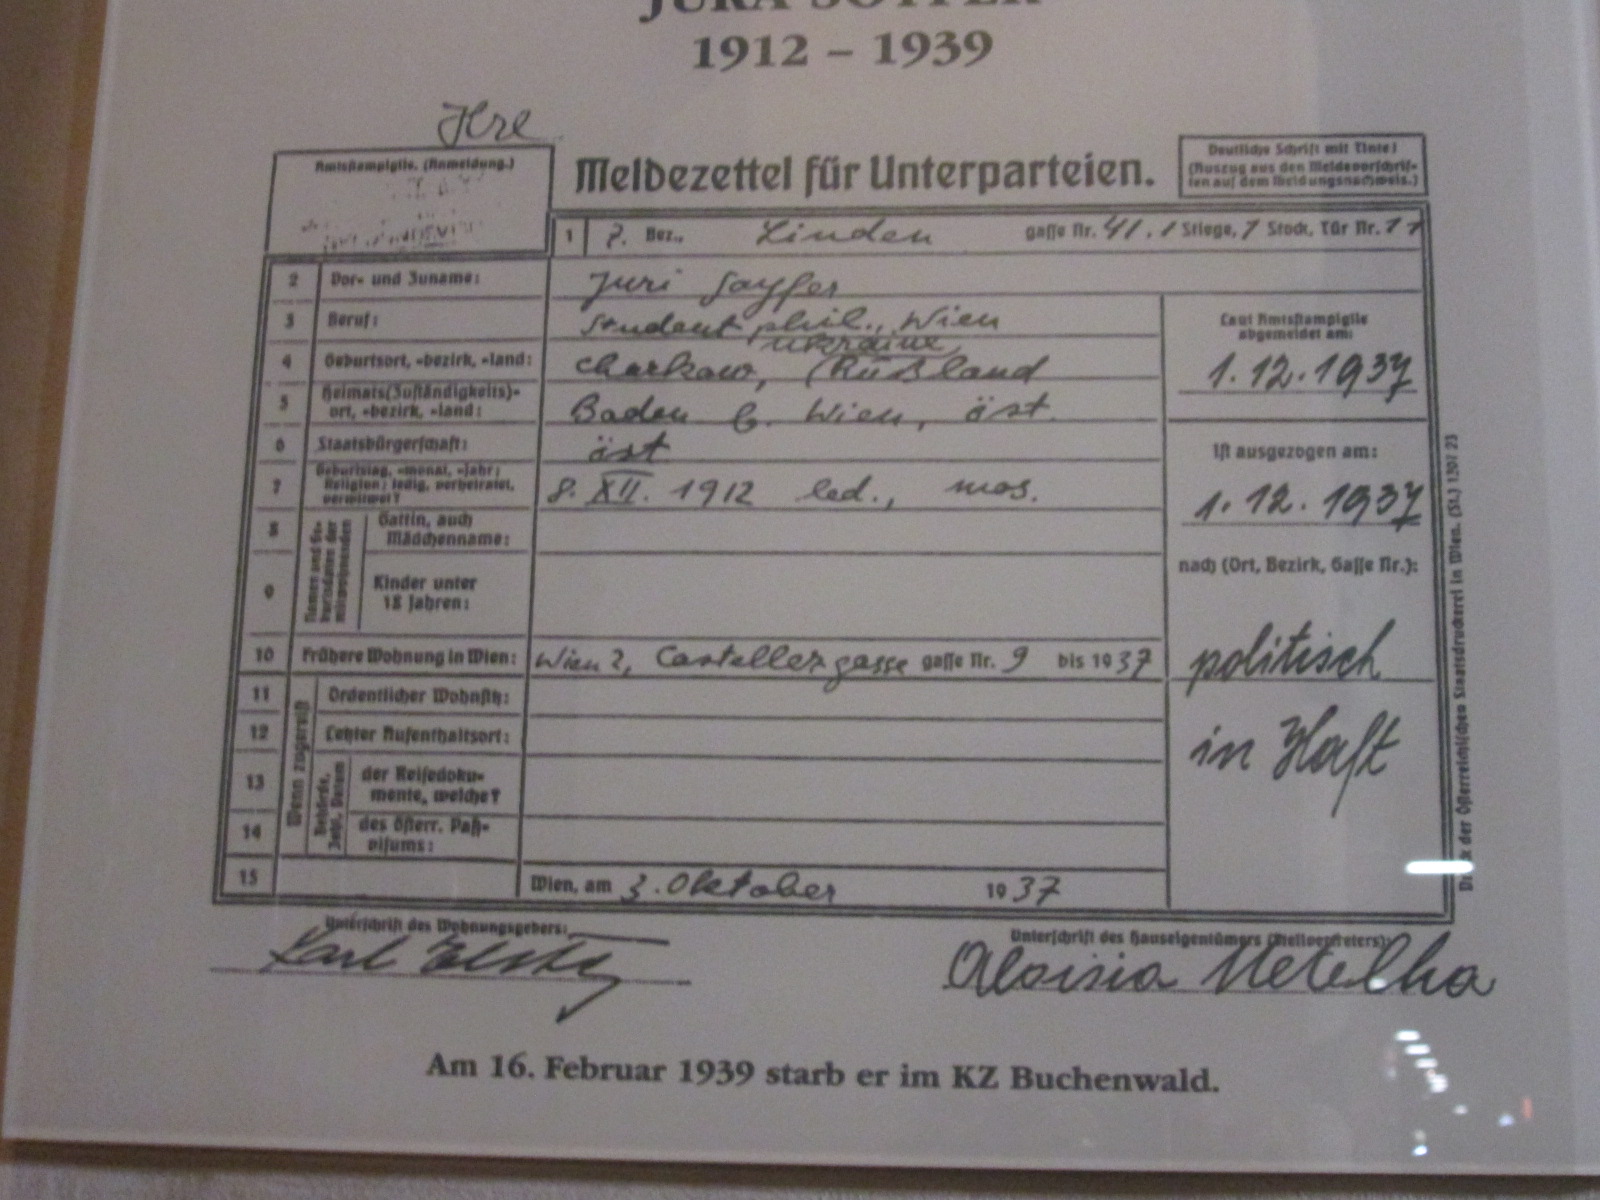 JURA SOYFER
1912 – 1939
Amtsstampiglie. (Anmeldung.)
Meldezettel für Unterparteien.
Deutliche Schrift mit Tinte!
(Auszug aus den Meldevorschrif-
ten auf dem Meldungsnachweis.)
1 Bez., Linden gasse Nr. 41. 1 Stiege, 1 Stock, Tür Nr. 11
2 Vor- und Zuname: Juri Soyfer
3 Beruf: Student phil., Wien
Laut Amtsstampiglie
abgemeldet am:
1.12.1937
Ukraine
4 Geburtsort, -bezirk, -land: Charkow, (Rußland
5 Heimats(Zuständigkeits)-
ort, -bezirk, -land: Baden b. Wien, öst.
6 Staatsbürgerschaft: öst
Ist ausgezogen am:
1.12.1937
7 Geburtstag, -monat, -jahr;
Religion; ledig, verheiratet,
verwitwet? 8. XII. 1912 led., mos.
8 Gattin, auch
Mädchenname:
nach (Ort, Bezirk, Gasse Nr.):
politisch
in Haft
9 Kinder unter
18 Jahren:
10 Frühere Wohnung in Wien: Wien 2, Castellezgasse gasse Nr. 9 bis 1937
Wenn zugereist
11 Ordentlicher Wohnsitz:
12 Letzter Aufenthaltsort:
13 der Reisedoku-
mente, welche?
14 des österr. Paß-
visums:
15 Wien, am 3. Oktober 1937
Druck der Österreichischen Staatsdruckerei in Wien. (St.)
Unterschrift des Wohnungsgebers:
Karl
Unterschrift des Hauseigentümers (Stellvertreters):
Aloisia Metelka
Am 16. Februar 1939 starb er im KZ Buchenwald.